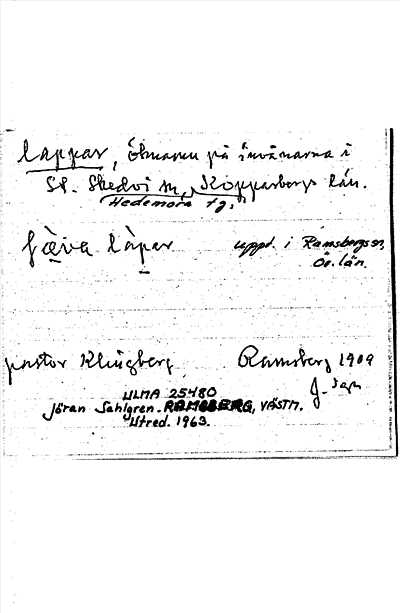 lappar, öknamn på invånarna i
St. Skedvi sn, Kopparbergs län.
Hedemora tg.
fæva làpar uppt. i Ramsbergs sn,
Ör. län.
pastor Klingberg Ramsberg 1909
J.
ULMA 25480
Jöran Sahlgren. RAMSBERG, VÄSTM.
Utred. 1963.